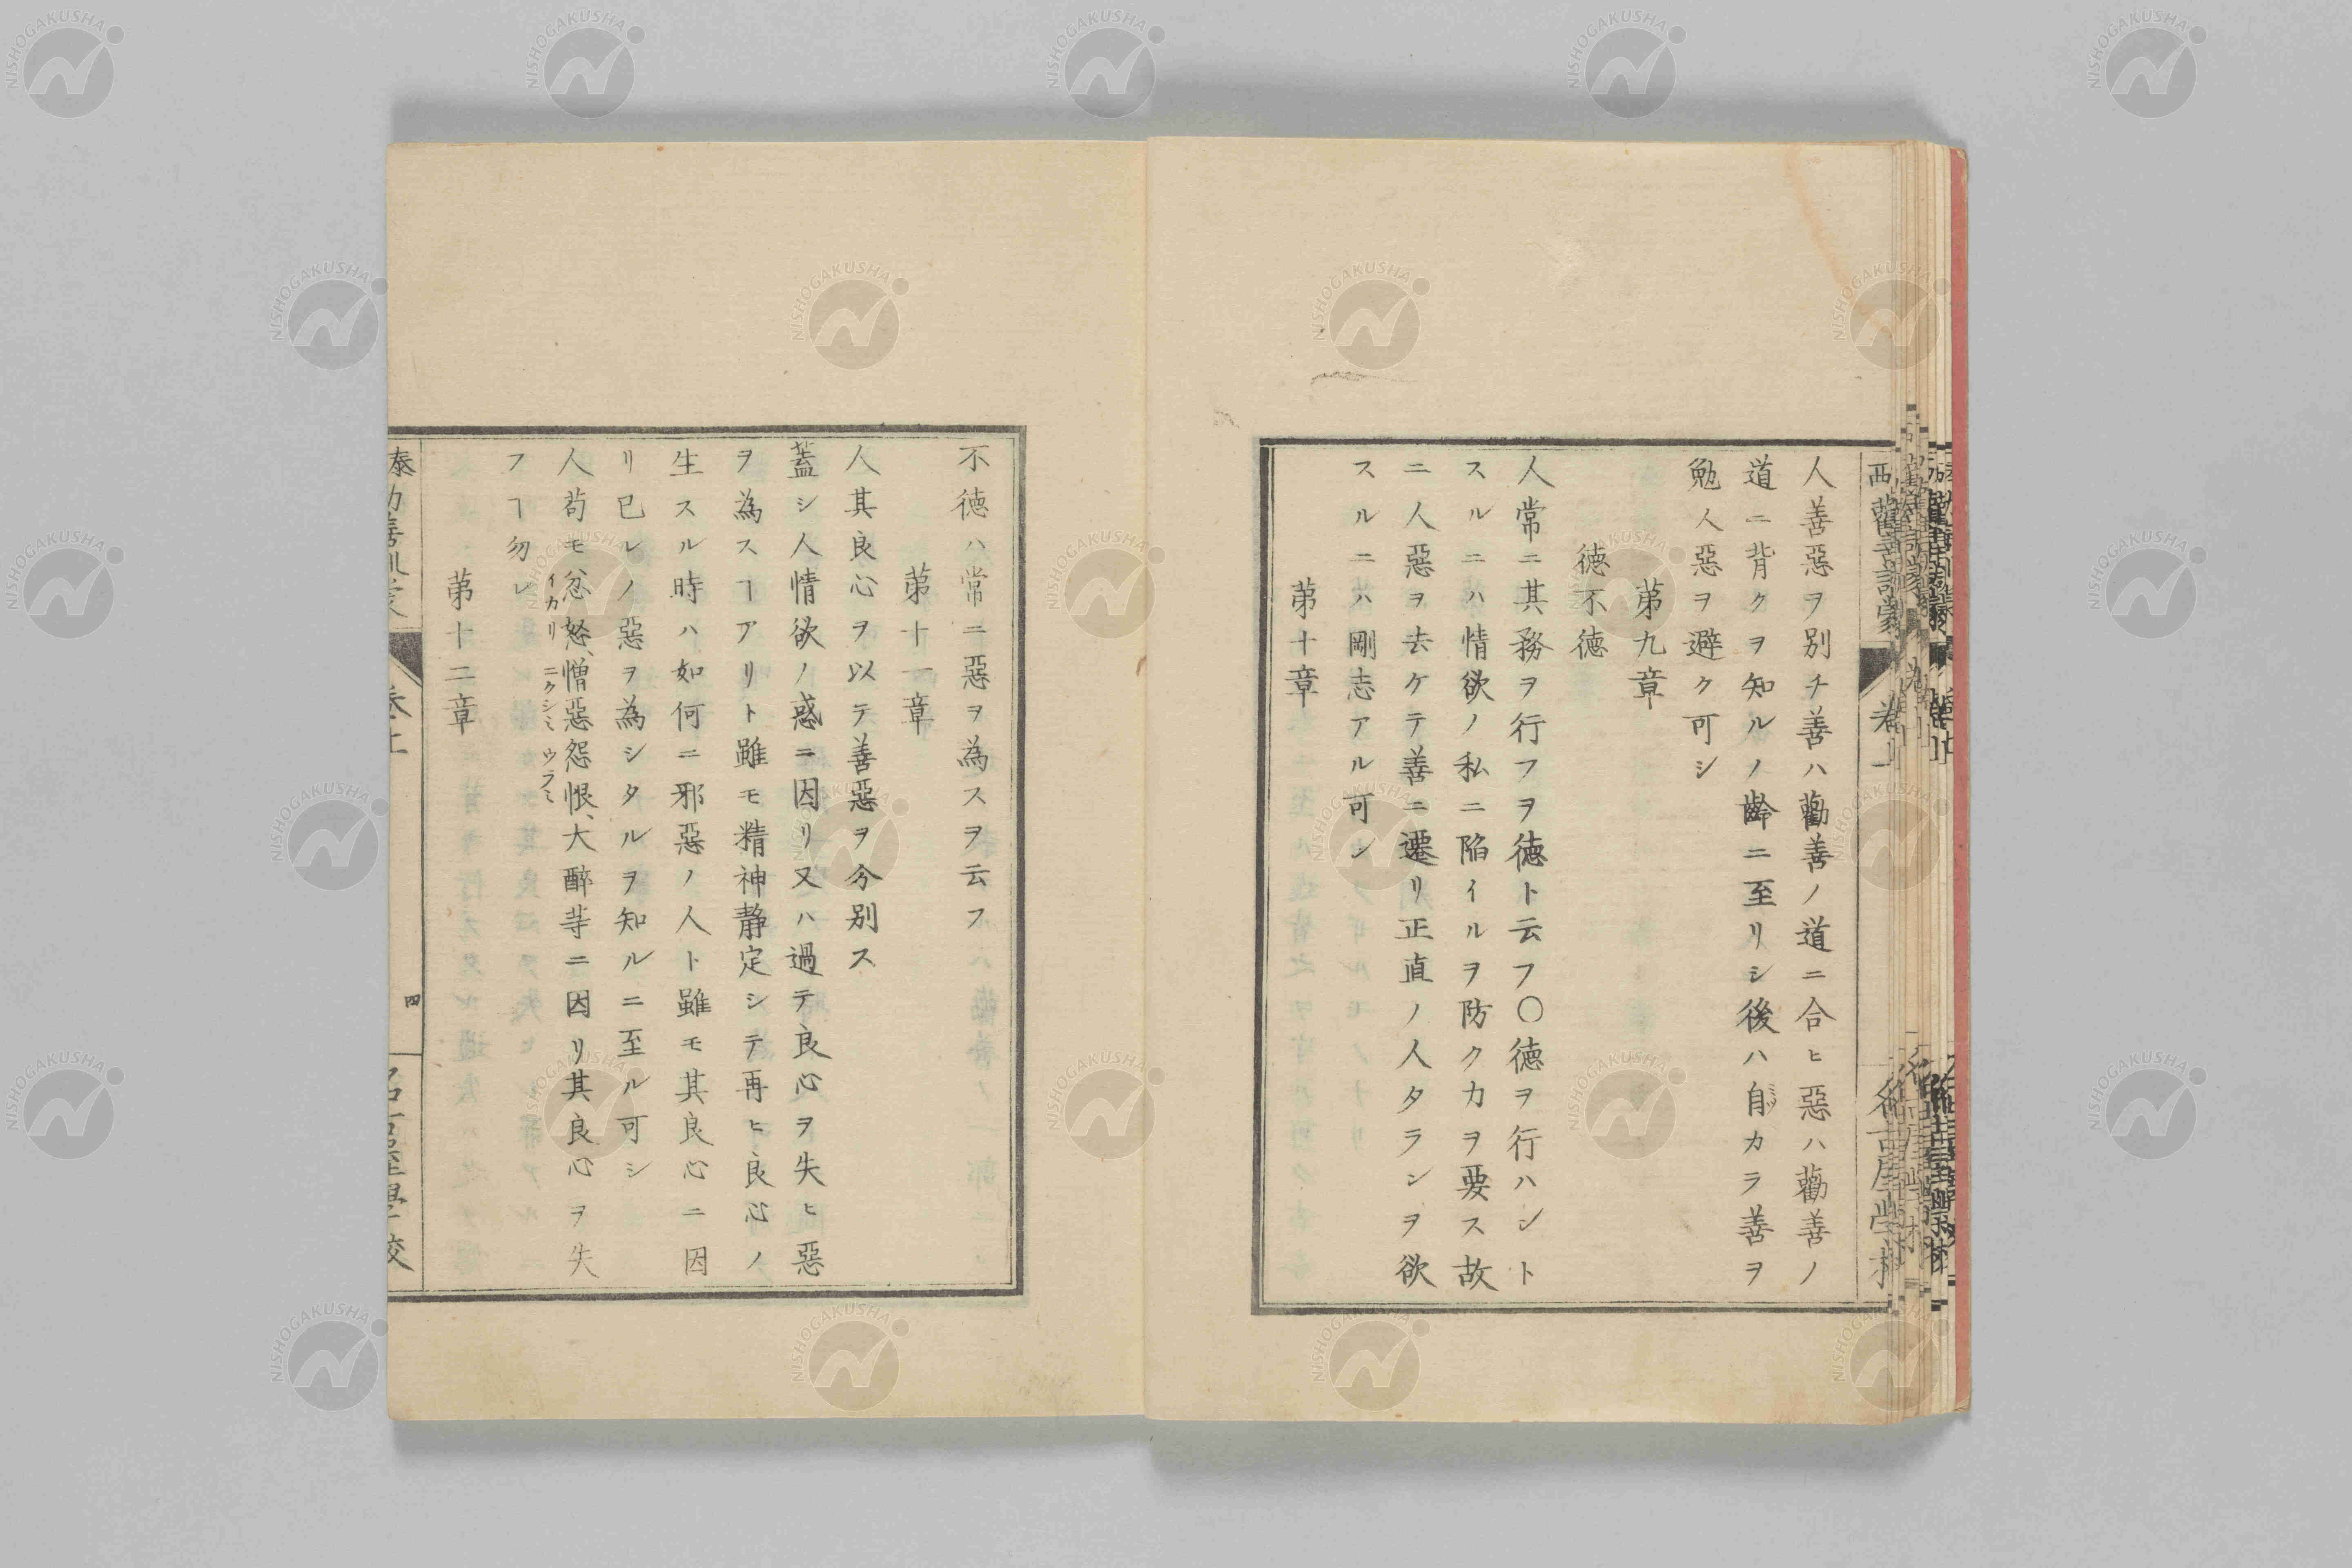 人善惡ヲ別チ善ハ勸善ノ道ニ合ヒ惡ハ勸善ノ
道ニ背クヲ知ルノ齡ニ至リシ後ハ自カラ善ヲ
勉メ惡ヲ避ク可シ
第九章
德不德
人常ニ其務ヲ行フヲ德ト云フ〇德ヲ行ハント
スルニハ情欲ノ私ニ陷イルヲ防ク力ヲ要ス故
ニ人惡ヲ去ケテ善ニ遷リ正直ノ人タランヲ欲
スルニハ剛志アル可シ
第十章
不德ハ常ニ惡ヲ為スヲ云フ
第十一章
人其良心ヲ以テ善惡ヲ分別ス
蓋シ人情欲ノ惑ニ因リ又ハ過テ良心ヲ失ヒ惡
ヲ為スヿアリト雖モ精神靜定シテ再ヒ良心ノ
生スル時ハ如何ニ邪惡ノ人ト雖モ其良心ニ因
リ已レノ惡ヲ為シタルヲ知ルニ至ル可シ
人苟モ忿怒、憎惡怨恨、大醉等ニ因リ其良心ヲ失
イカリ ニクシミ ウラミ
フヿ勿レ
第十二章
四
NISHOGAKUSHA